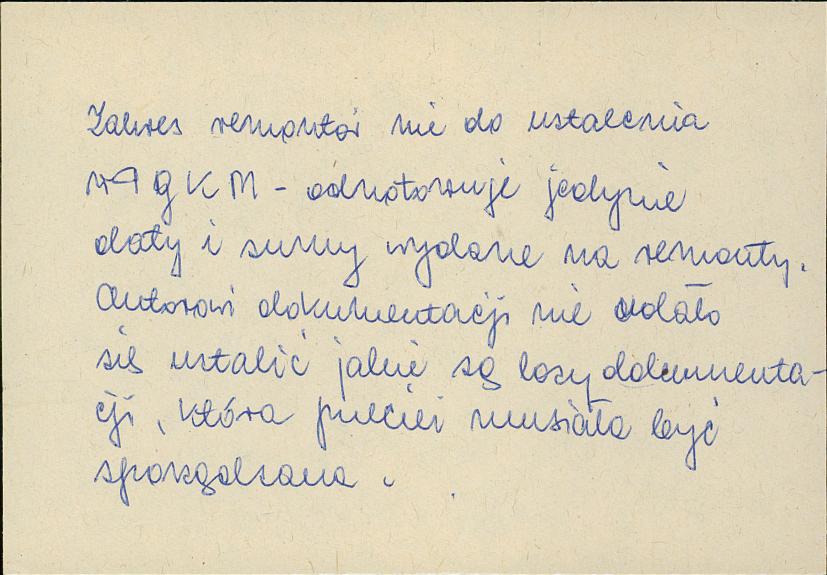 Zakres remontów nie do ustalenia
w PGKM - odnotowuje jedynie
daty i sumy wydane na remonty.
Autorowi dokumentacji nie udało
się ustalić jakie są losy dokumenta-
cji, która przecież musiała być
sporządzana.